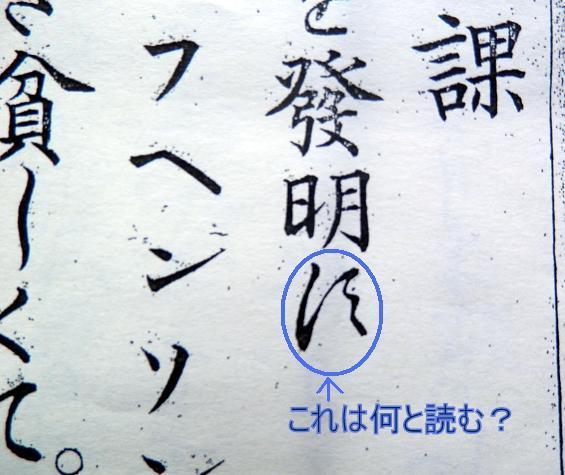 課
發明
フヘンソン
貧しくて。
これは何と読む？